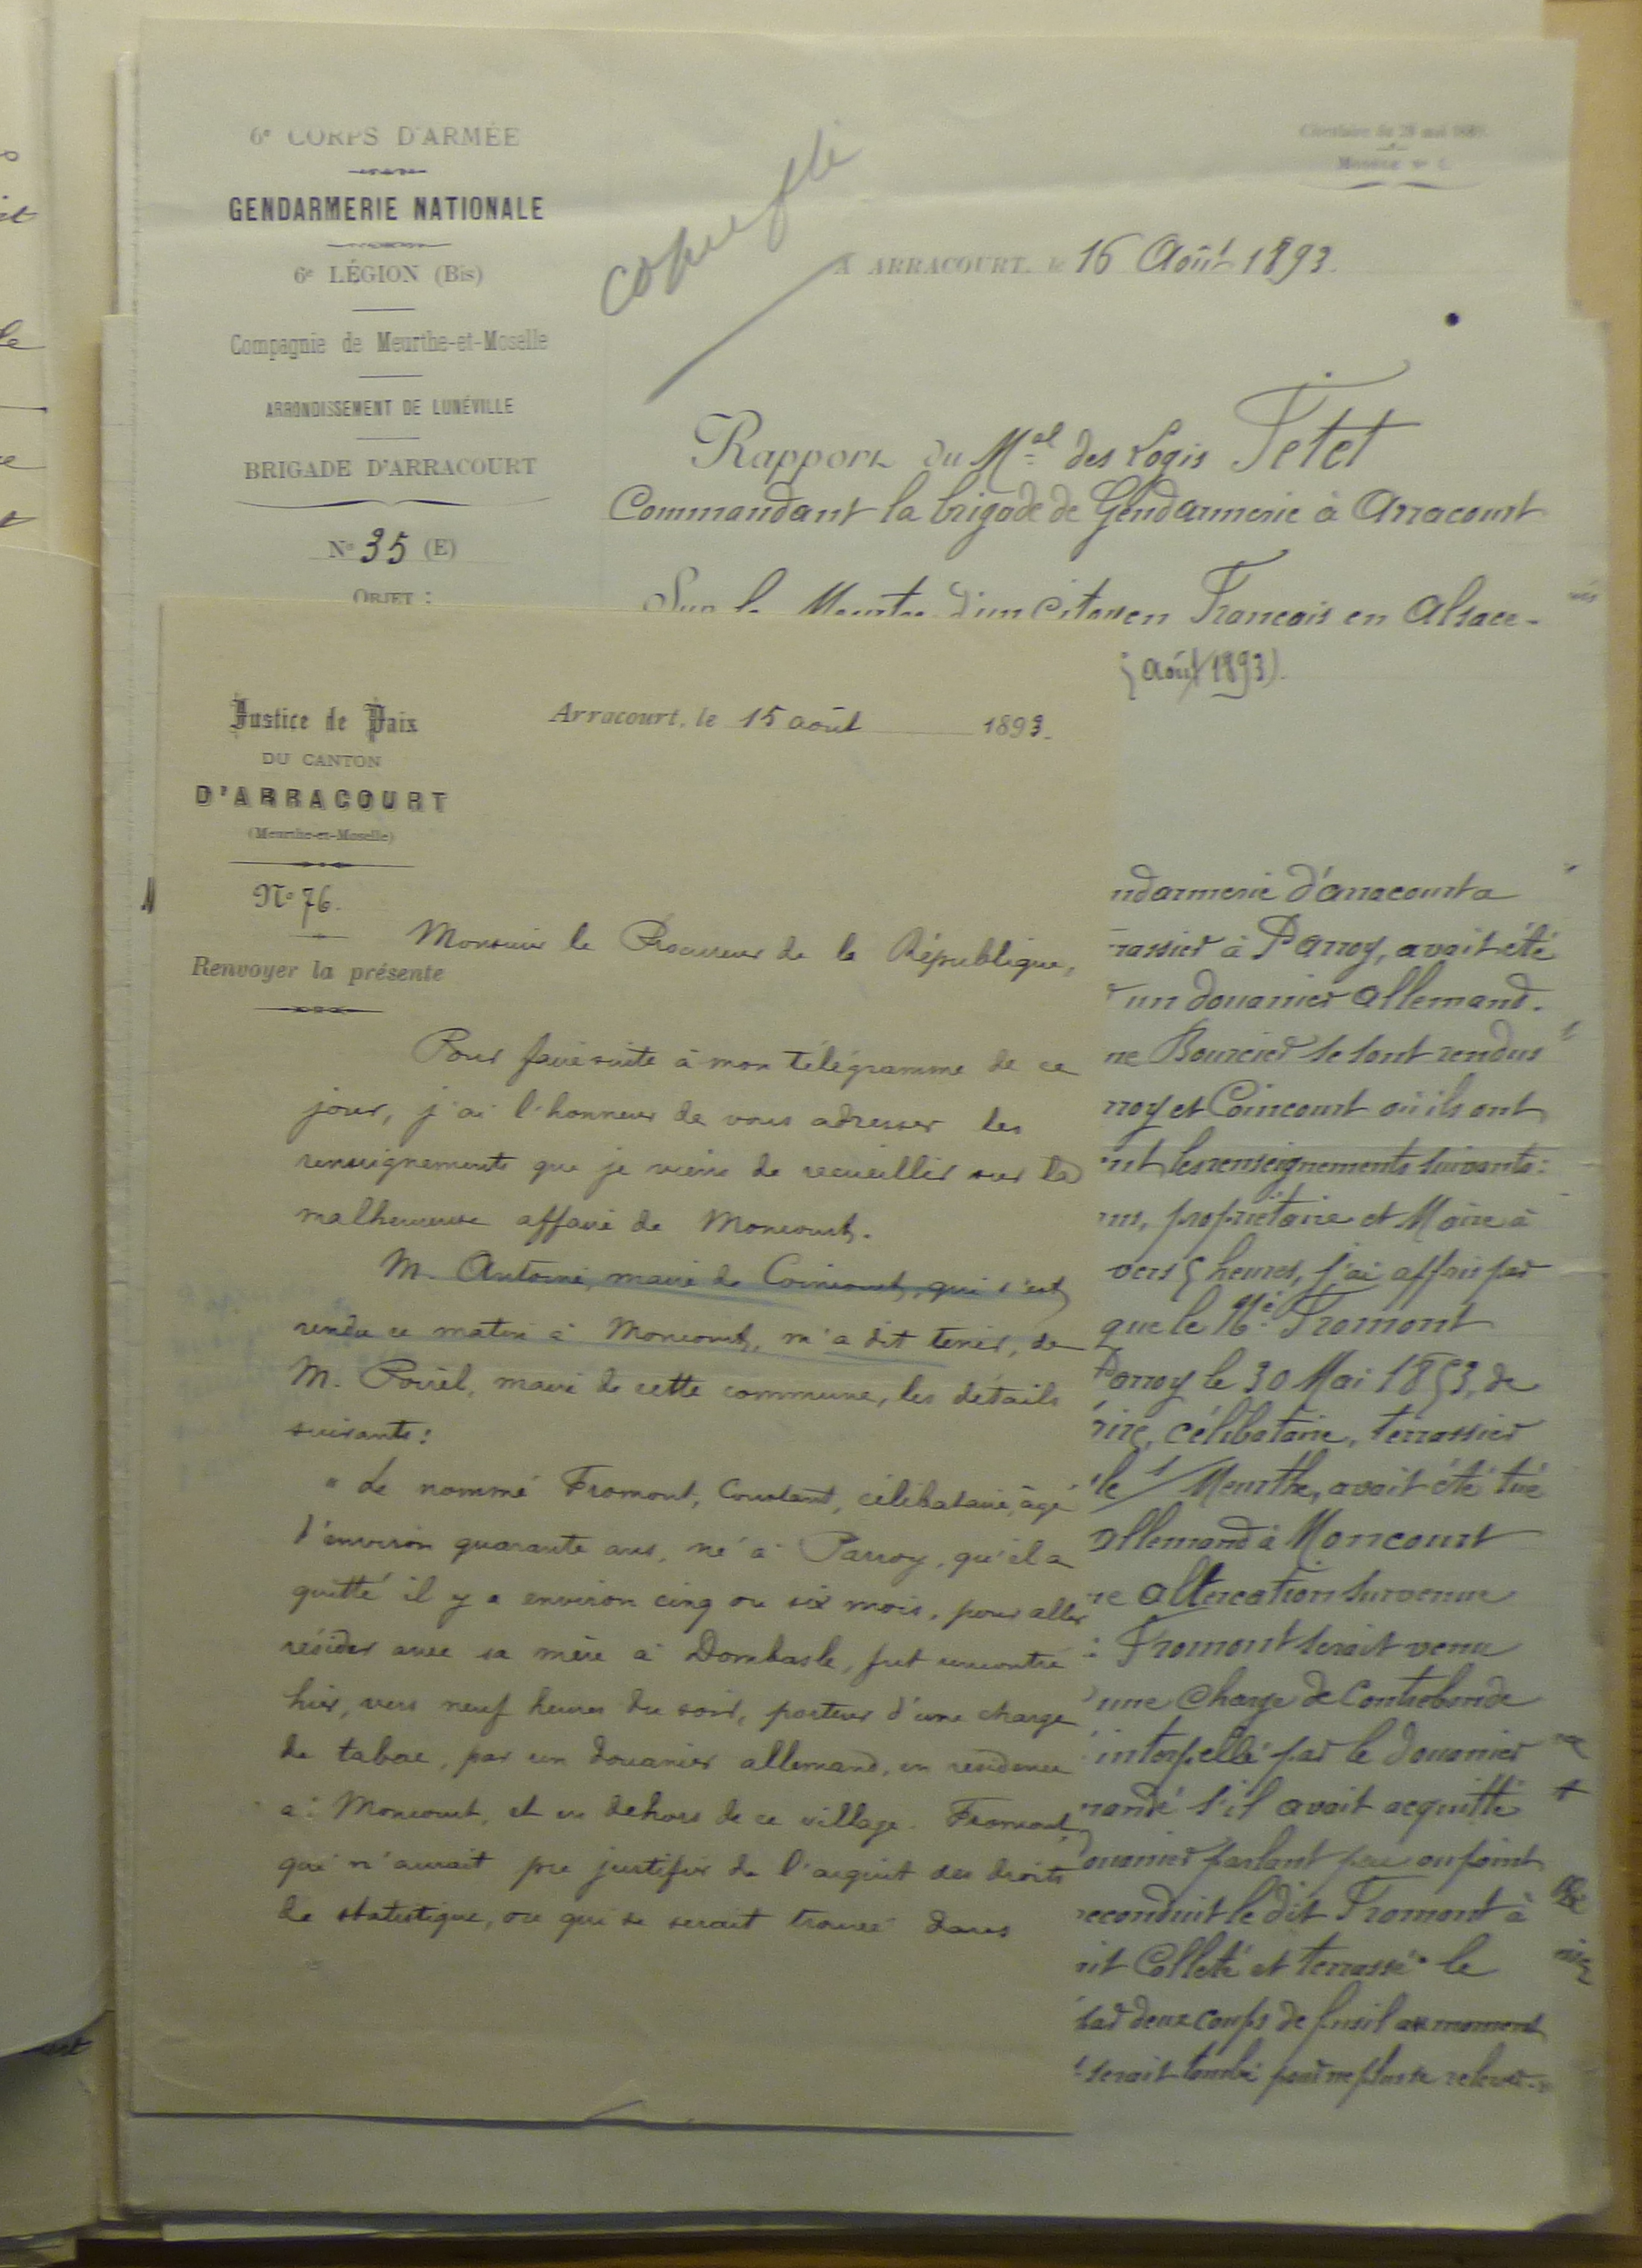 6e CORPS D'ARMÉE
GENDARMERIE NATIONALE
6e LÉGION (Bis)
Compagnie de Meurthe-et-Moselle
ARRONDISSEMENT DE LUNÉVILLE
BRIGADE D'ARRACOURT
No 35 (E)
OBJET :
Circulaire du
A ARRACOURT, le 16 Août 1893.
Rapport du Mal des Logis Tetet
Commandant la brigade de Gendarmerie à Arracourt
Sur le Meurtre d'un Citoyen Français en Alsace-
Août 1893).
Justice de Paix
DU CANTON
D'ARRACOURT
(Meurthe-et-Moselle)
No 76.
Renvoyer la présente
Arracourt, le 15 août 1893.
Monsieur le Procureur de la République,
Pour faire suite à mon télégramme de ce
jour, j'ai l'honneur de vous adresser les
renseignements que je viens de recueillir sur la
malheureuse affaire de Moncourt.
M. Antoine, maire de Coincourt, qui s'est
rendu ce matin à Moncourt, m'a dit tenir, de
M. Poirel, maire de cette commune, les détails
suivants :
" Le nommé Fromont, Constant, célibataire, âgé
d'environ quarante ans, né à Parroy, qu'il a
quitté il y a environ cinq ou six mois, pour aller
résider avec sa mère à Dombasle, fut rencontré
hier, vers neuf heures du soir, porteur d'une charge
de tabac, par un douanier allemand, en résidence
à Moncourt, et en dehors de ce village. Fromont,
qui n'aurait pu justifier de l'acquit des droits
de statistique, ou qui se serait trouvé dans
ndarmerie d'Arracourt a
rassier à Parroy, avait été
un douanier allemand.
ne Bourcier se sont rendus
rroy et Coincourt où ils ont
nt les renseignements suivants :
propriétaire et Maire à
vers 5 heures, j'ai appris par
que le Né Fromont
Parroy le 30 Mai 1853, de
célibataire, terrassier
le s/ Meurthe, avait été tué
allemand à Moncourt
ne altercation survenue
: Fromont serait venu
une charge de Contrebande
interpellé par le douanier
mandé s'il avait acquitté
ouanier parlant peu ou point
reconduit le dit Fromont à
ait Colleté et terrassé le
deux coups de fusil au moment
serait tombé pour ne plus se relever.